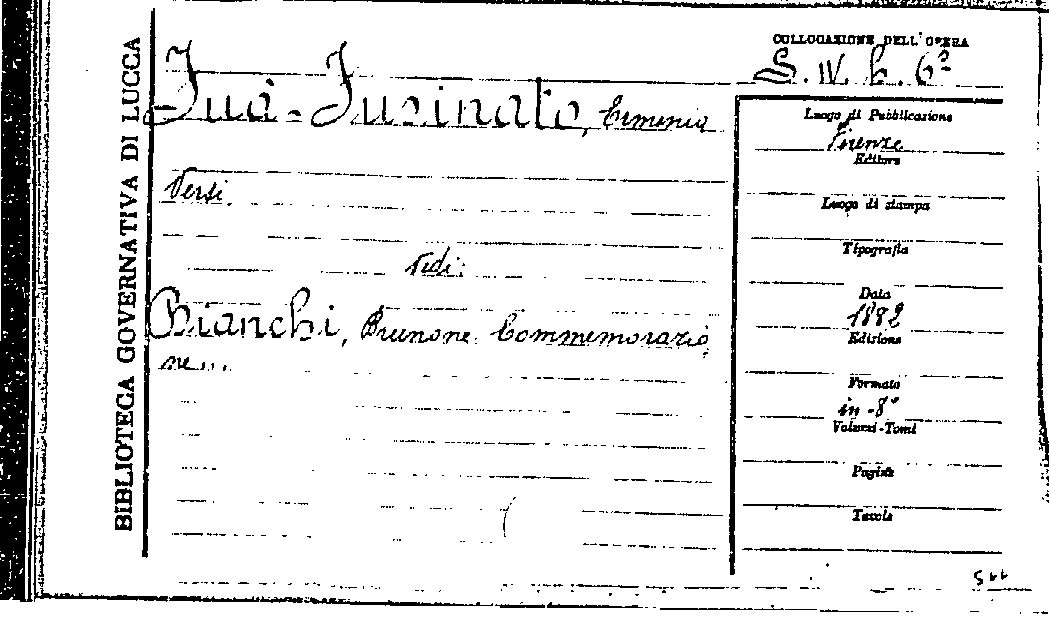 BIBLIOTECA GOVERNATIVA DI LUCCA
COLLOCAZIONE DELL'OPERA
S. IV. b. 6²
Fuà-Fusinato, Erminia
Versi.
Vedi:
Bianchi, Brunone. Commemorazio
ne...
Luogo di Pubblicazione
Firenze
Editore
Luogo di stampa
Tipografia
Data
1882
Edizione
Formato
in-8°
Volumi-Tomi
Pagine
Tavole